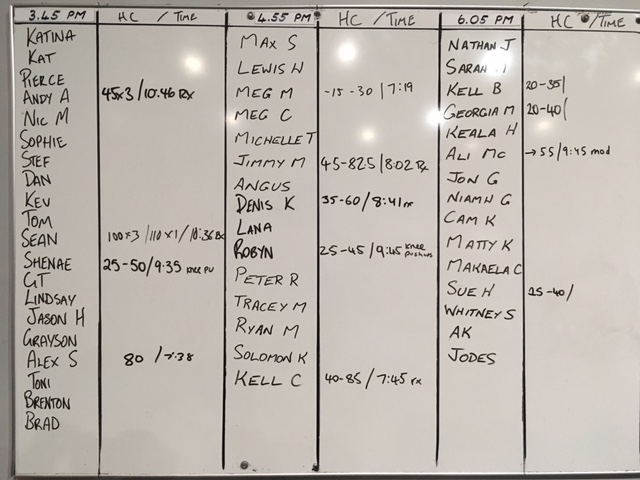 3.45 PM HC / TIME
KATINA
KAT
PIERCE
ANDY A 45x3/10:46 Rx
NIC M
SOPHIE
STEF
DAN
KEV
TOM
SEAN 100x3/110x1/10:36 Rx
SHENAE 25-50/9:35 KNEE PU
GT
LINDSAY
JASON H
GRAYSON
ALEX S 80 /7:38
TONI
BRENTON
BRAD
4.55 PM HC /TIME
MAX S
LEWIS H
MEG M -15-30/7:19
MEG C
MICHELLE T
JIMMY M 45-82.5/8:02 Rx
ANGUS
DENIS K 35-60/8:41 rx
LANA
ROBYN 25-45/9:45 KNEE PUSHUPS
PETER R
TRACEY M
RYAN M
SOLOMON K
KELL C 40-85/7:45 rx
6.05 PM HC /TIME
NATHAN J
SARAH
KELL B 20-35/
GEORGIA M 20-40/
KEALA H
ALI MC →55/9:45 mod
JON G
NIAMH G
CAM K
MATTY K
MAKAELA C
SUE H 25-40/
WHITNEY S
AK
JODES